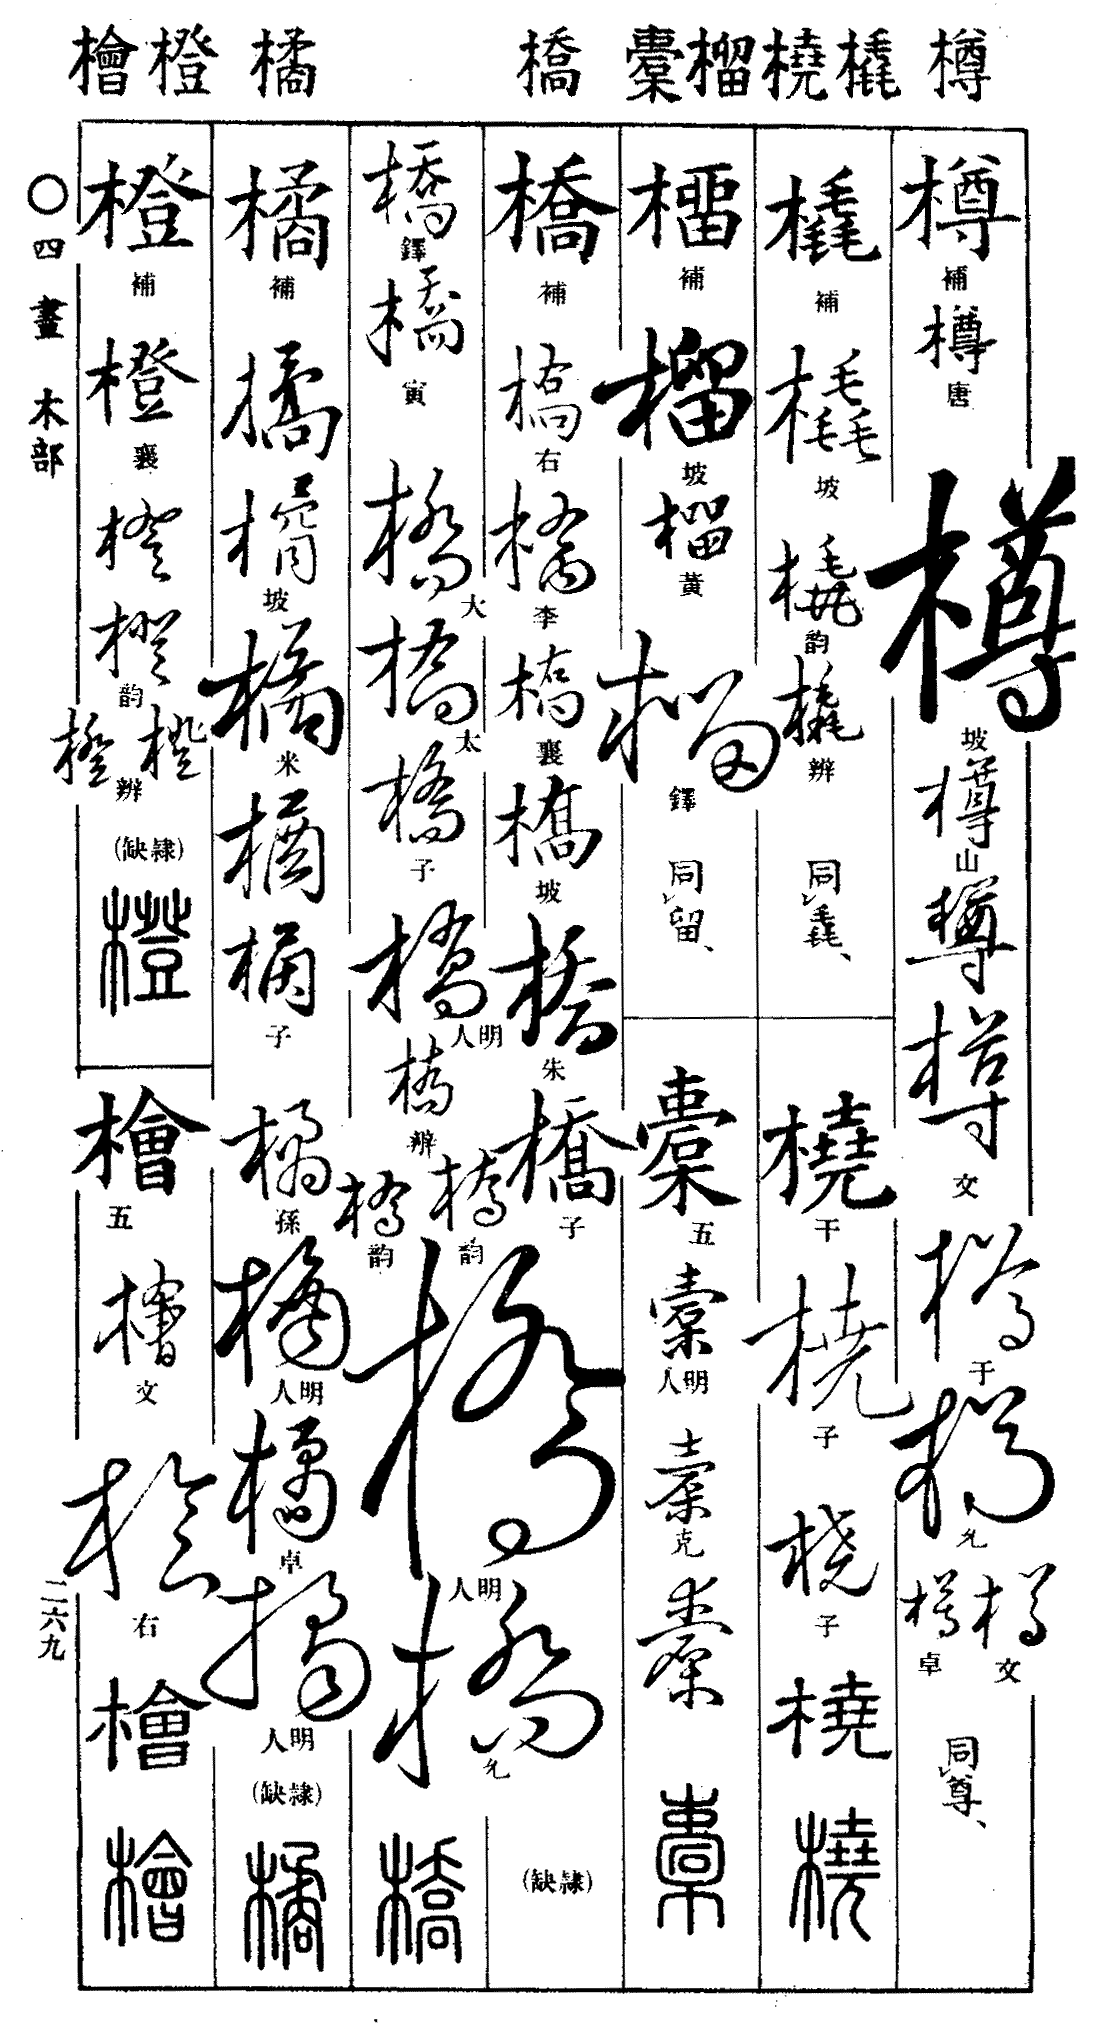 樽 橇 橈 榴 橐 橋 橘 橙 檜
樽 補 樽 唐 樽 坡 樽 山 樽 樽 文 樽 于 樽 允 樽 文 樽 卓 同樽、
橇 補 橇 坡 橇 韵 橇 辨 同毳、
橈 干 橈 子 橈 子 橈 橈
榴 補 榴 坡 榴 黃 榴 鐸 同留、
橐 五 橐 明人 橐 克 橐 橐
橋 補 橋 右 橋 李 橋 襄 橋 坡 橋 朱 橋 子 (隸缺)
橋 鐸 橋 寅 橋 大 橋 太 橋 子 橋 明人 橋 辨 橋 韵 橋 韵 橋 明人 橋 允 橋
橘 補 橘 橘 坡 橘 米 橘 橘 子 橘 孫 橘 明人 橘 卓 橘 明人 (隸缺) 橘
橙 補 橙 襄 橙 橙 韵 橙 橙 辨 (隸缺) 橙
檜 五 檜 文 檜 右 檜 檜
○四畫 木部
二六九